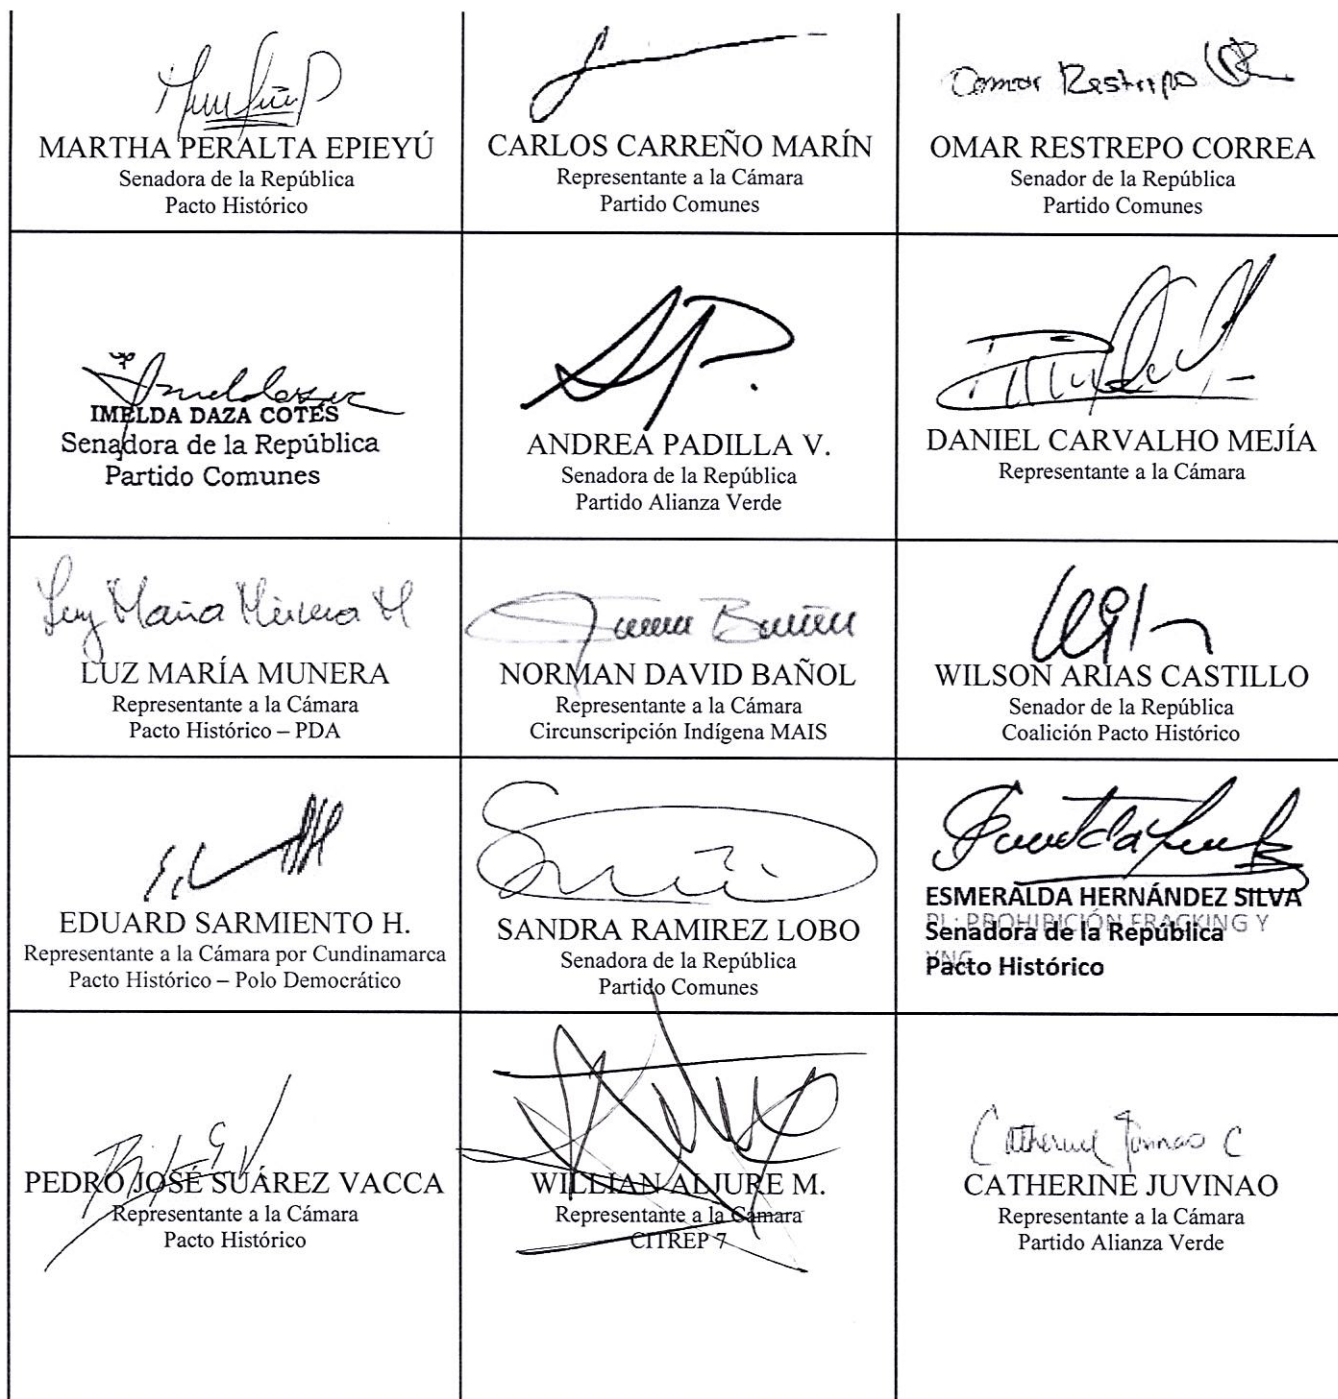 MARTHA PERALTA EPIEYÚ
Senadora de la República
Pacto Histórico
CARLOS CARREÑO MARÍN
Representante a la Cámara
Partido Comunes
Omar Restrepo
OMAR RESTREPO CORREA
Senador de la República
Partido Comunes
IMELDA DAZA COTES
Senadora de la República
Partido Comunes
ANDREA PADILLA V.
Senadora de la República
Partido Alianza Verde
DANIEL CARVALHO MEJÍA
Representante a la Cámara
Luz María Múnera M
LUZ MARÍA MUNERA
Representante a la Cámara
Pacto Histórico – PDA
NORMAN DAVID BAÑOL
Representante a la Cámara
Circunscripción Indígena MAIS
WILSON ARIAS CASTILLO
Senador de la República
Coalición Pacto Histórico
EDUARD SARMIENTO H.
Representante a la Cámara por Cundinamarca
Pacto Histórico – Polo Democrático
SANDRA RAMIREZ LOBO
Senadora de la República
Partido Comunes
ESMERALDA HERNÁNDEZ SILVA
PL: PROHIBICIÓN FRACKING Y
Senadora de la República
YNC
Pacto Histórico
PEDRO JOSÉ SUÁREZ VACCA
Representante a la Cámara
Pacto Histórico
WILLIAN ALJURE M.
Representante a la Cámara
CITREP 7
Catherine Juvinao C
CATHERINE JUVINAO
Representante a la Cámara
Partido Alianza Verde